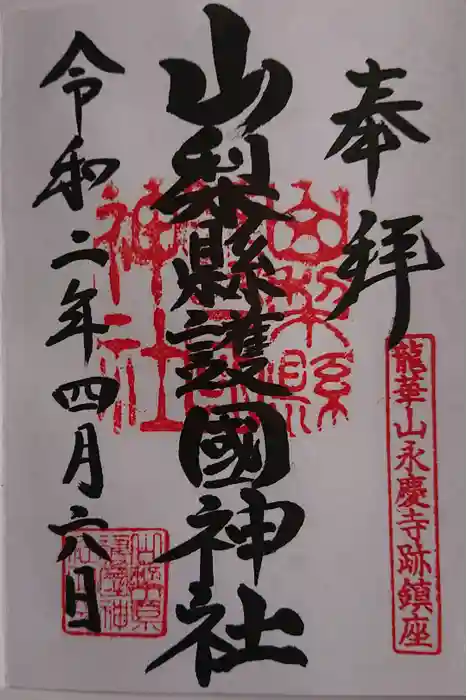 奉拝
龍華山永慶寺跡鎮座
山梨縣護國神社
山梨縣護國神社
令和二年四月六日